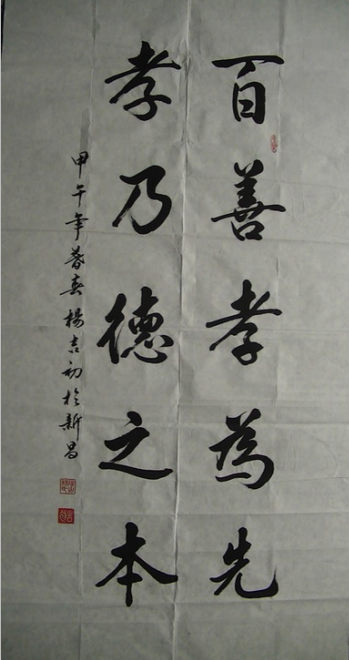 百善孝為先
孝乃德之本
甲午年暮春楊吉初於新昌